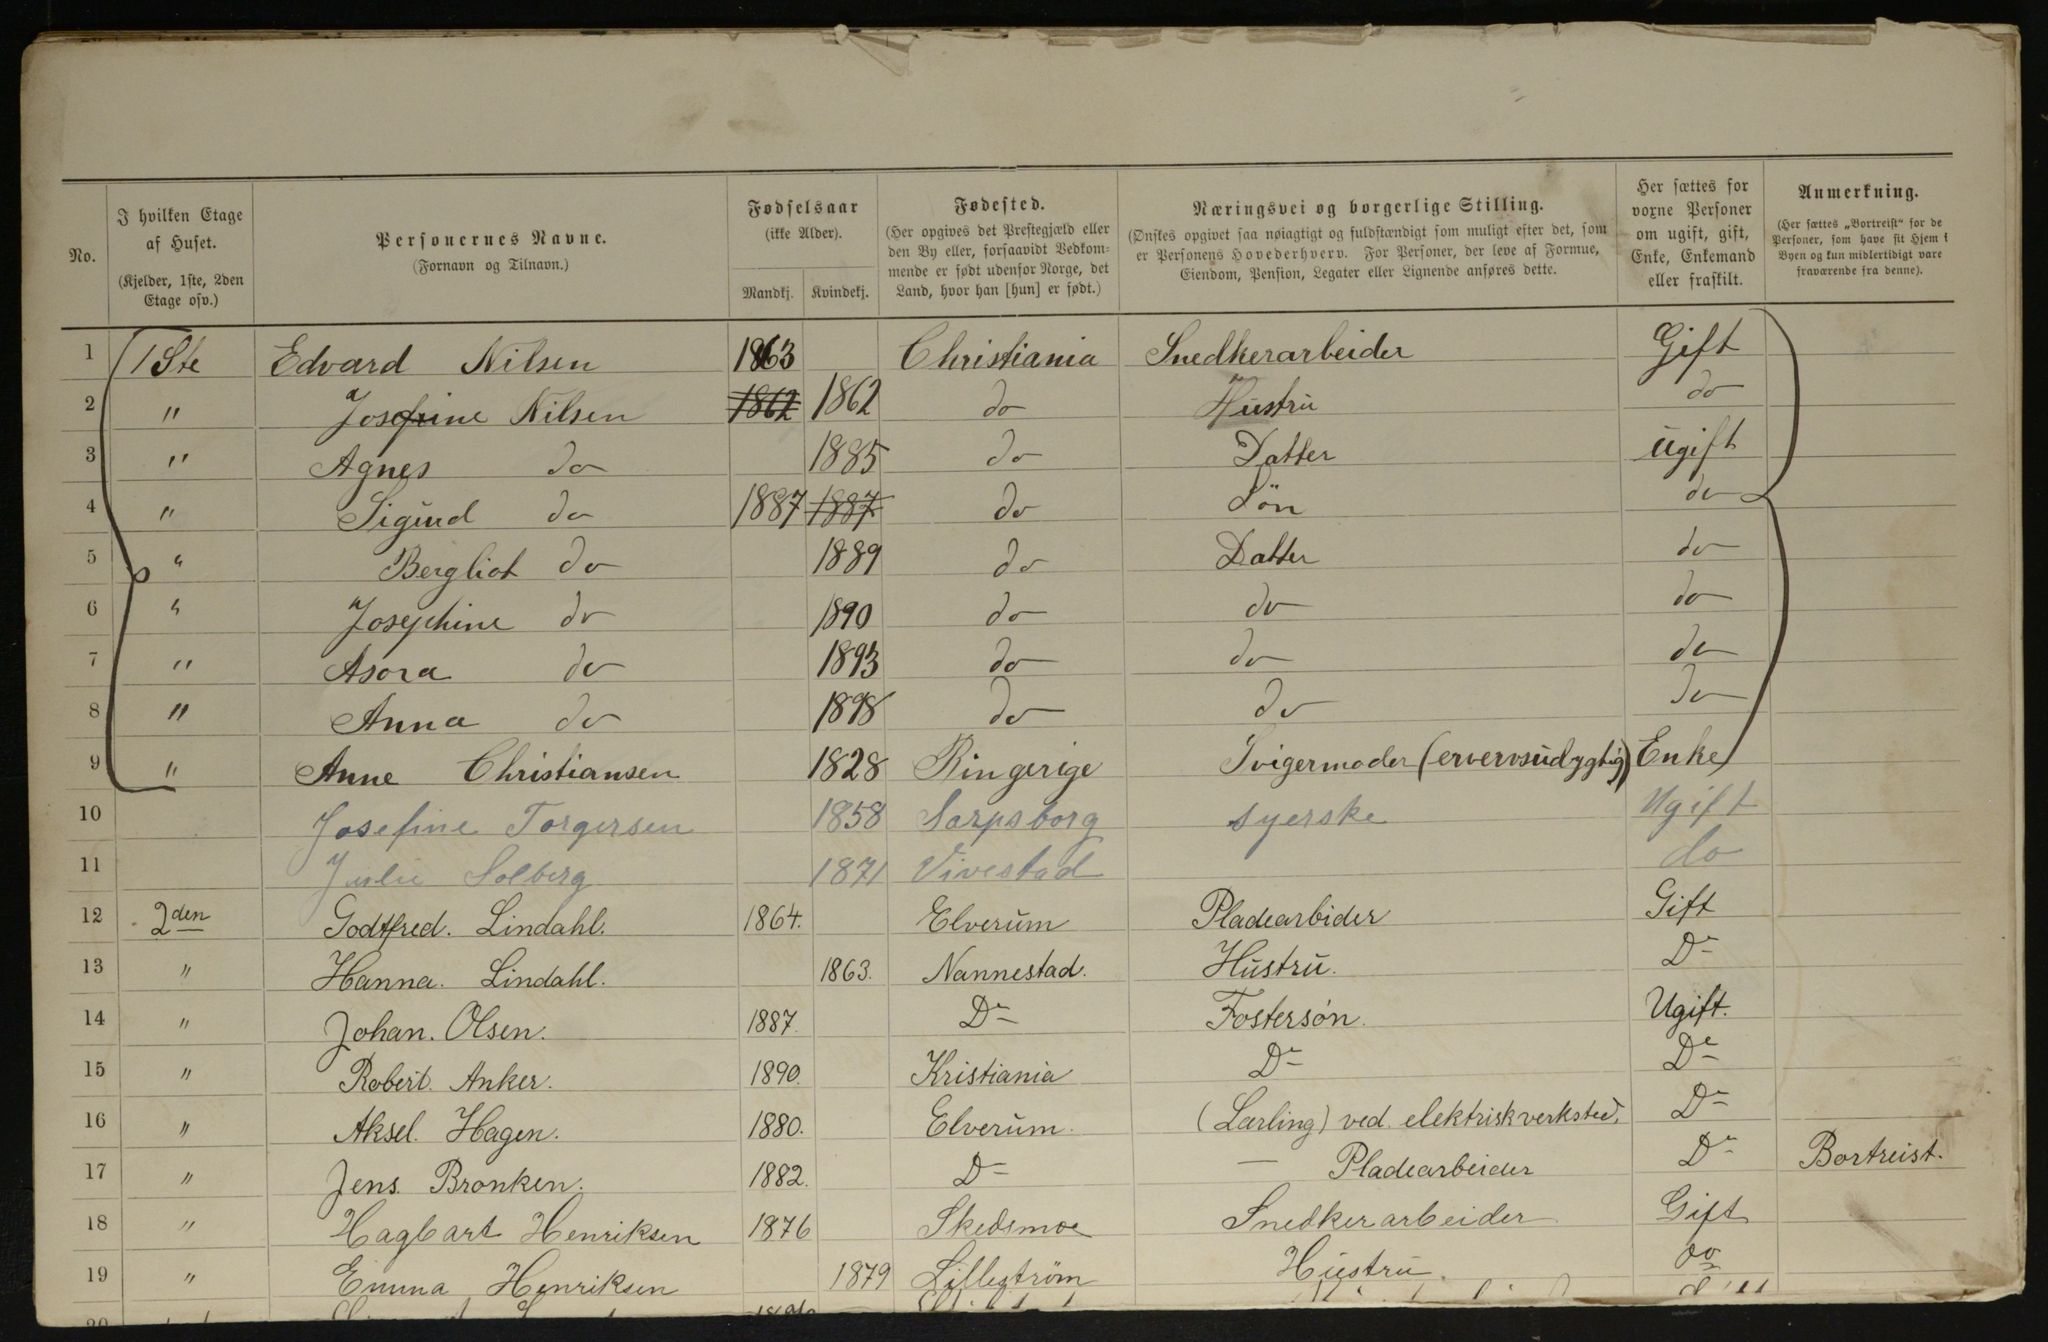 No.
I hvilken Etage af Huset.
(Kjelder, 1ste, 2den Etage osv.)
Personernes Navne.
(Fornavn og Tilnavn.)
Fødselsaar
(ikke Alder).
Mandkj. Kvindekj.
Fødested.
(Her opgives det Prestegjæld eller
den By eller, forsaavidt Vedkom-
mende er født udenfor Norge, det
Land, hvor han [hun] er født.)
Næringsvei og borgerlige Stilling.
(Ønskes opgivet saa nøiagtigt og fuldstændigt som muligt efter det, som
er Personens Hovederhverv. For Personer, der leve af Formue,
Eiendom, Pension, Legater eller Lignende anføres dette.
Her sættes for
voxne Personer
om ugift, gift,
Enke, Enkemand
eller fraskilt.
Anmerkning.
(Her sættes „Bortreist“ for de
Personer, som have sit Hjem i
Byen og kun midlertidigt vare
fraværende fra denne).
1 1Ste Edvard Nilsen 1863 Christiania Snedkerarbeider Gift
2 " Josefine Nilsen 1862 1862 do Hustru do
3 " Agnes do 1885 do Datter Ugift
4 " Sigurd do 1887 1887 do Søn do
5 " Bergliot do 1889 do Datter do
6 " Josephine do 1890 do do do
7 " Asora do 1893 do do do
8 " Anna do 1898 do do do
9 " Anne Christiansen 1828 Ringerige Svigermoder (ervervsudygtig) Enke
10 Josefine Torgersen 1858 Sarpsborg syerske Ugift
11 Julie Solberg 1871 Vivestad do
12 2den Godtfred. Lindahl. 1864. Elverum Pladearbider Gift
13 " Hanna. Lindahl. 1863. Nannestad. Hustru. Do
14 " Johan. Olsen. 1887. Do Fostersøn. Ugift.
15 " Robert. Anker. 1890. Kristiania Do Do
16 " Aksel. Hagen. 1880. Elverum. (Lærling) ved. elektriskverksted. Do
17 " Jens. Bronken. 1882. Do — Pladearbeider Do Bortreist.
18 " Hagbart Henriksen 1876 Skedsmoe Snedkerarbeider Gift
19 " Emma Henriksen 1879 Lillestrøm Hustru. do
20